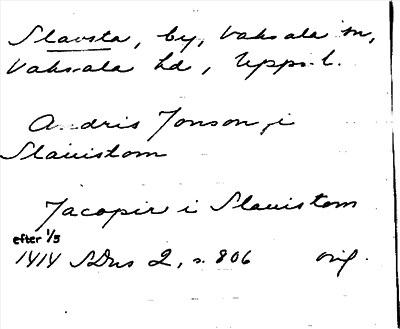 Slavsta, by, Vaksala sn,
Vaksala hd, Upps. l.
Andris Jonson i
Slauistom
Jacopir i Slauistom
efter 1/5
1414 SDns 2, s. 806 orig.